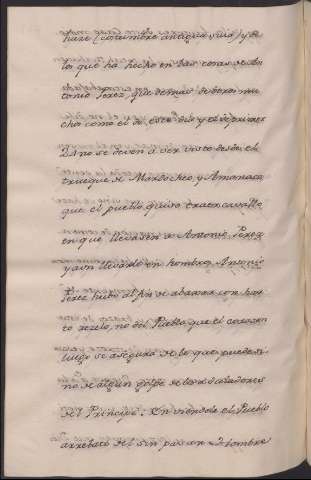 haze (costumbre antigua suia) y de
lo que ha hecho en las cosas de An
tonio Perez, que demas de boroi mu
cho como el de este dio y el de primer
no se deven a ver visto desde el
trueque de Mardocheo, y Aman aca
que el pueblo quiso traer cavallo
en que llevasen a Antonio Perez
y aun llevarlo en hombros Antonio
Perez huvo al fin de abaxar con har
to rezelo, no del Pueblo que el corazon
luego se asegura de lo que puede si
no de algun golpe de los executadores
del Principe. En viendole el Pueblo
arrebató del sin pasar hombre